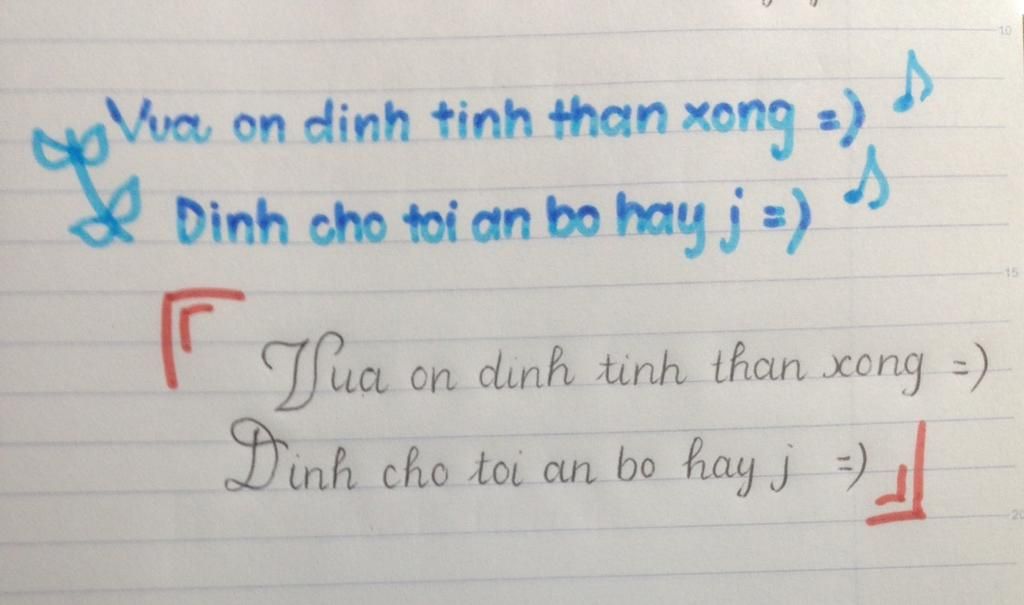 10
Vua on dinh tinh than xong =)
Dinh cho toi an bo hay j =)
15
Vua on dinh tinh than xong =)
Dinh cho toi an bo hay j =)
20